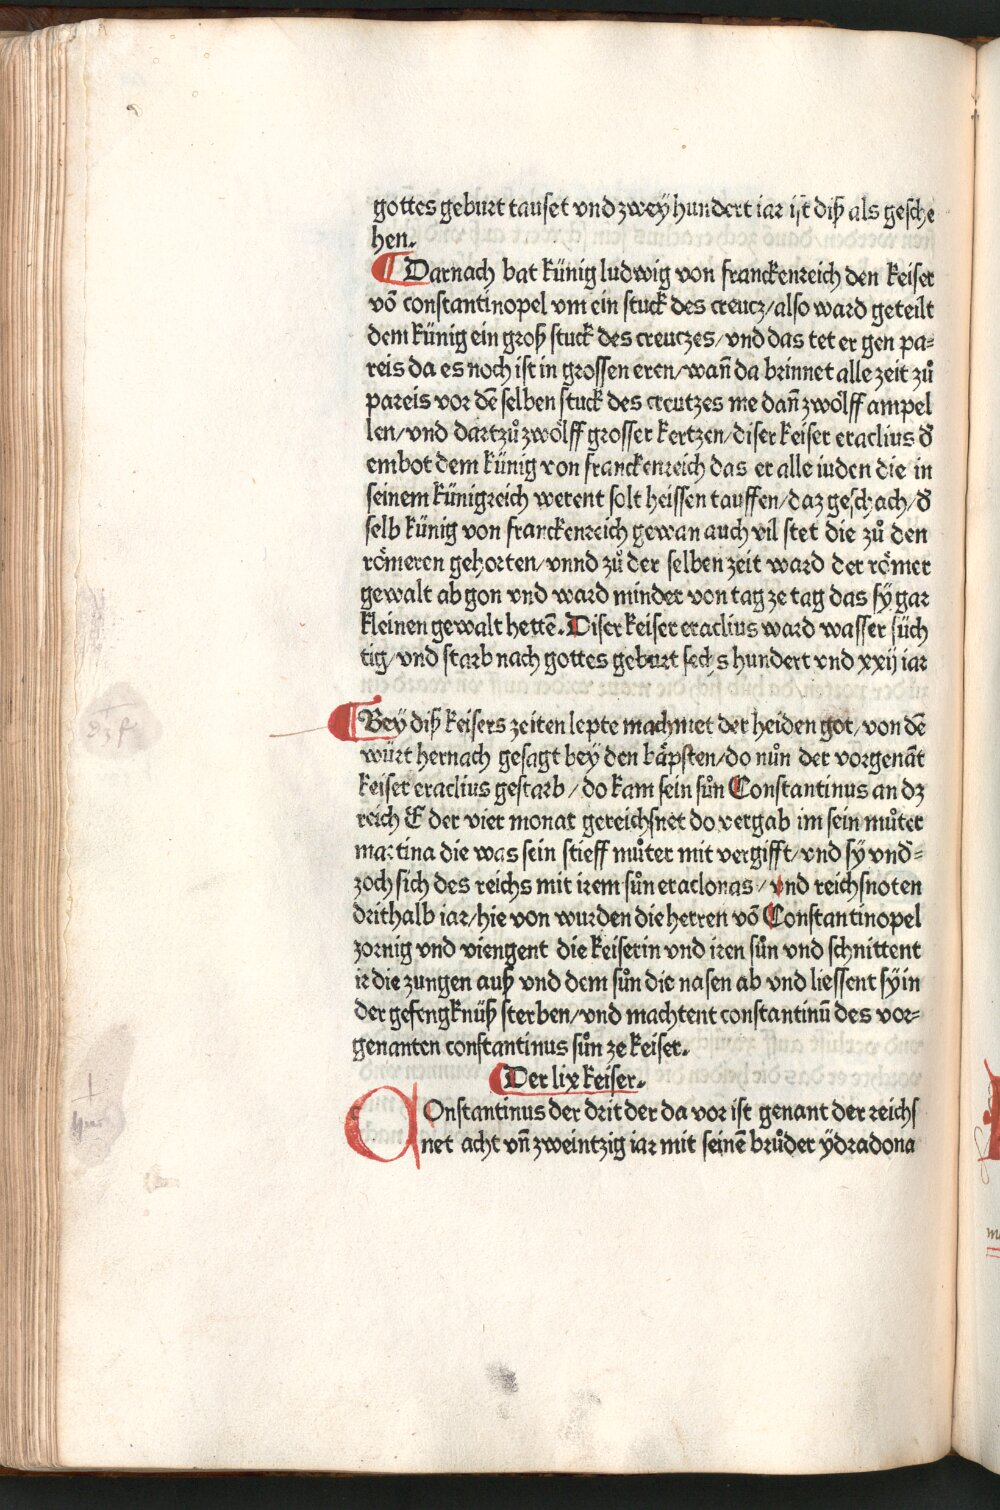 gottes geburt tauset vnd zweyhundert iar ist diß als gesche
hen.
Darnach bat künig ludwig von franckenreich den keiser
võ constantinopel vm ein stuck des creucz/also ward geteilt
dem künig ein groß stuck des creuczes/vnd das tet er gen pa⸗
reis da es noch ist in grossen eren/wañ da brinnet alle zeit zuͦ
pareis vor dẽ selben stuck des creutzes me dañ zwölff ampel
len/vnd dartzuͦ zwölff grosser kertzen/diser keiser eraclius đ
embot dem künig von franckenreich das er alle iuden die in
seinem künigreich werent solt heissen tauffen/daz geschach/đ
selb künig von franckenreich gewan auch vil stet die zuͦ den
römeren gehorten/vnnd zuͦ der selben zeit ward der römer
gewalt ab gon vnd ward minder von tag ze tag das sÿ gar
kleinen gewalt hettẽ. Diser keiser eraclius ward wasser süch
tig/vnd starb nach gottes geburt sechs hundert vnd xxij iar
Beÿ diß keisers zeiten lepte machmet der heiden got/von dẽ
würt hernach gesagt bey den käpsten/do nuͦn der vorgenãt
keiser eraclius gestarb/do kam sein suͦn Constantinus an dz
reich E der vier monat gereichsnet do vergab im sein muͦter
martina die was sein stieff muͦter mit vergifft/vnd sÿ vnd⸗
zoch sich des reichs mit irem suͦn eraclonas/vnd reichsnoten
drithalb iar/hie von wurden die herren võ Constantinopel
zornig vnd viengent die keiserin vnd iren suͦn vnd schnittent
ir die zungen auß vnd dem suͦn die nasen ab vnd liessent sÿ in
der gefengknüß sterben/vnd machtent constantinũ des vor⸗
genanten constantinus suͦn ze keiser.
Der lix keiser.
COnstantinus der drit der da vor ist genant der reichs
net acht vñ zweintzig iar mit seinẽ bruͦder ÿdradona